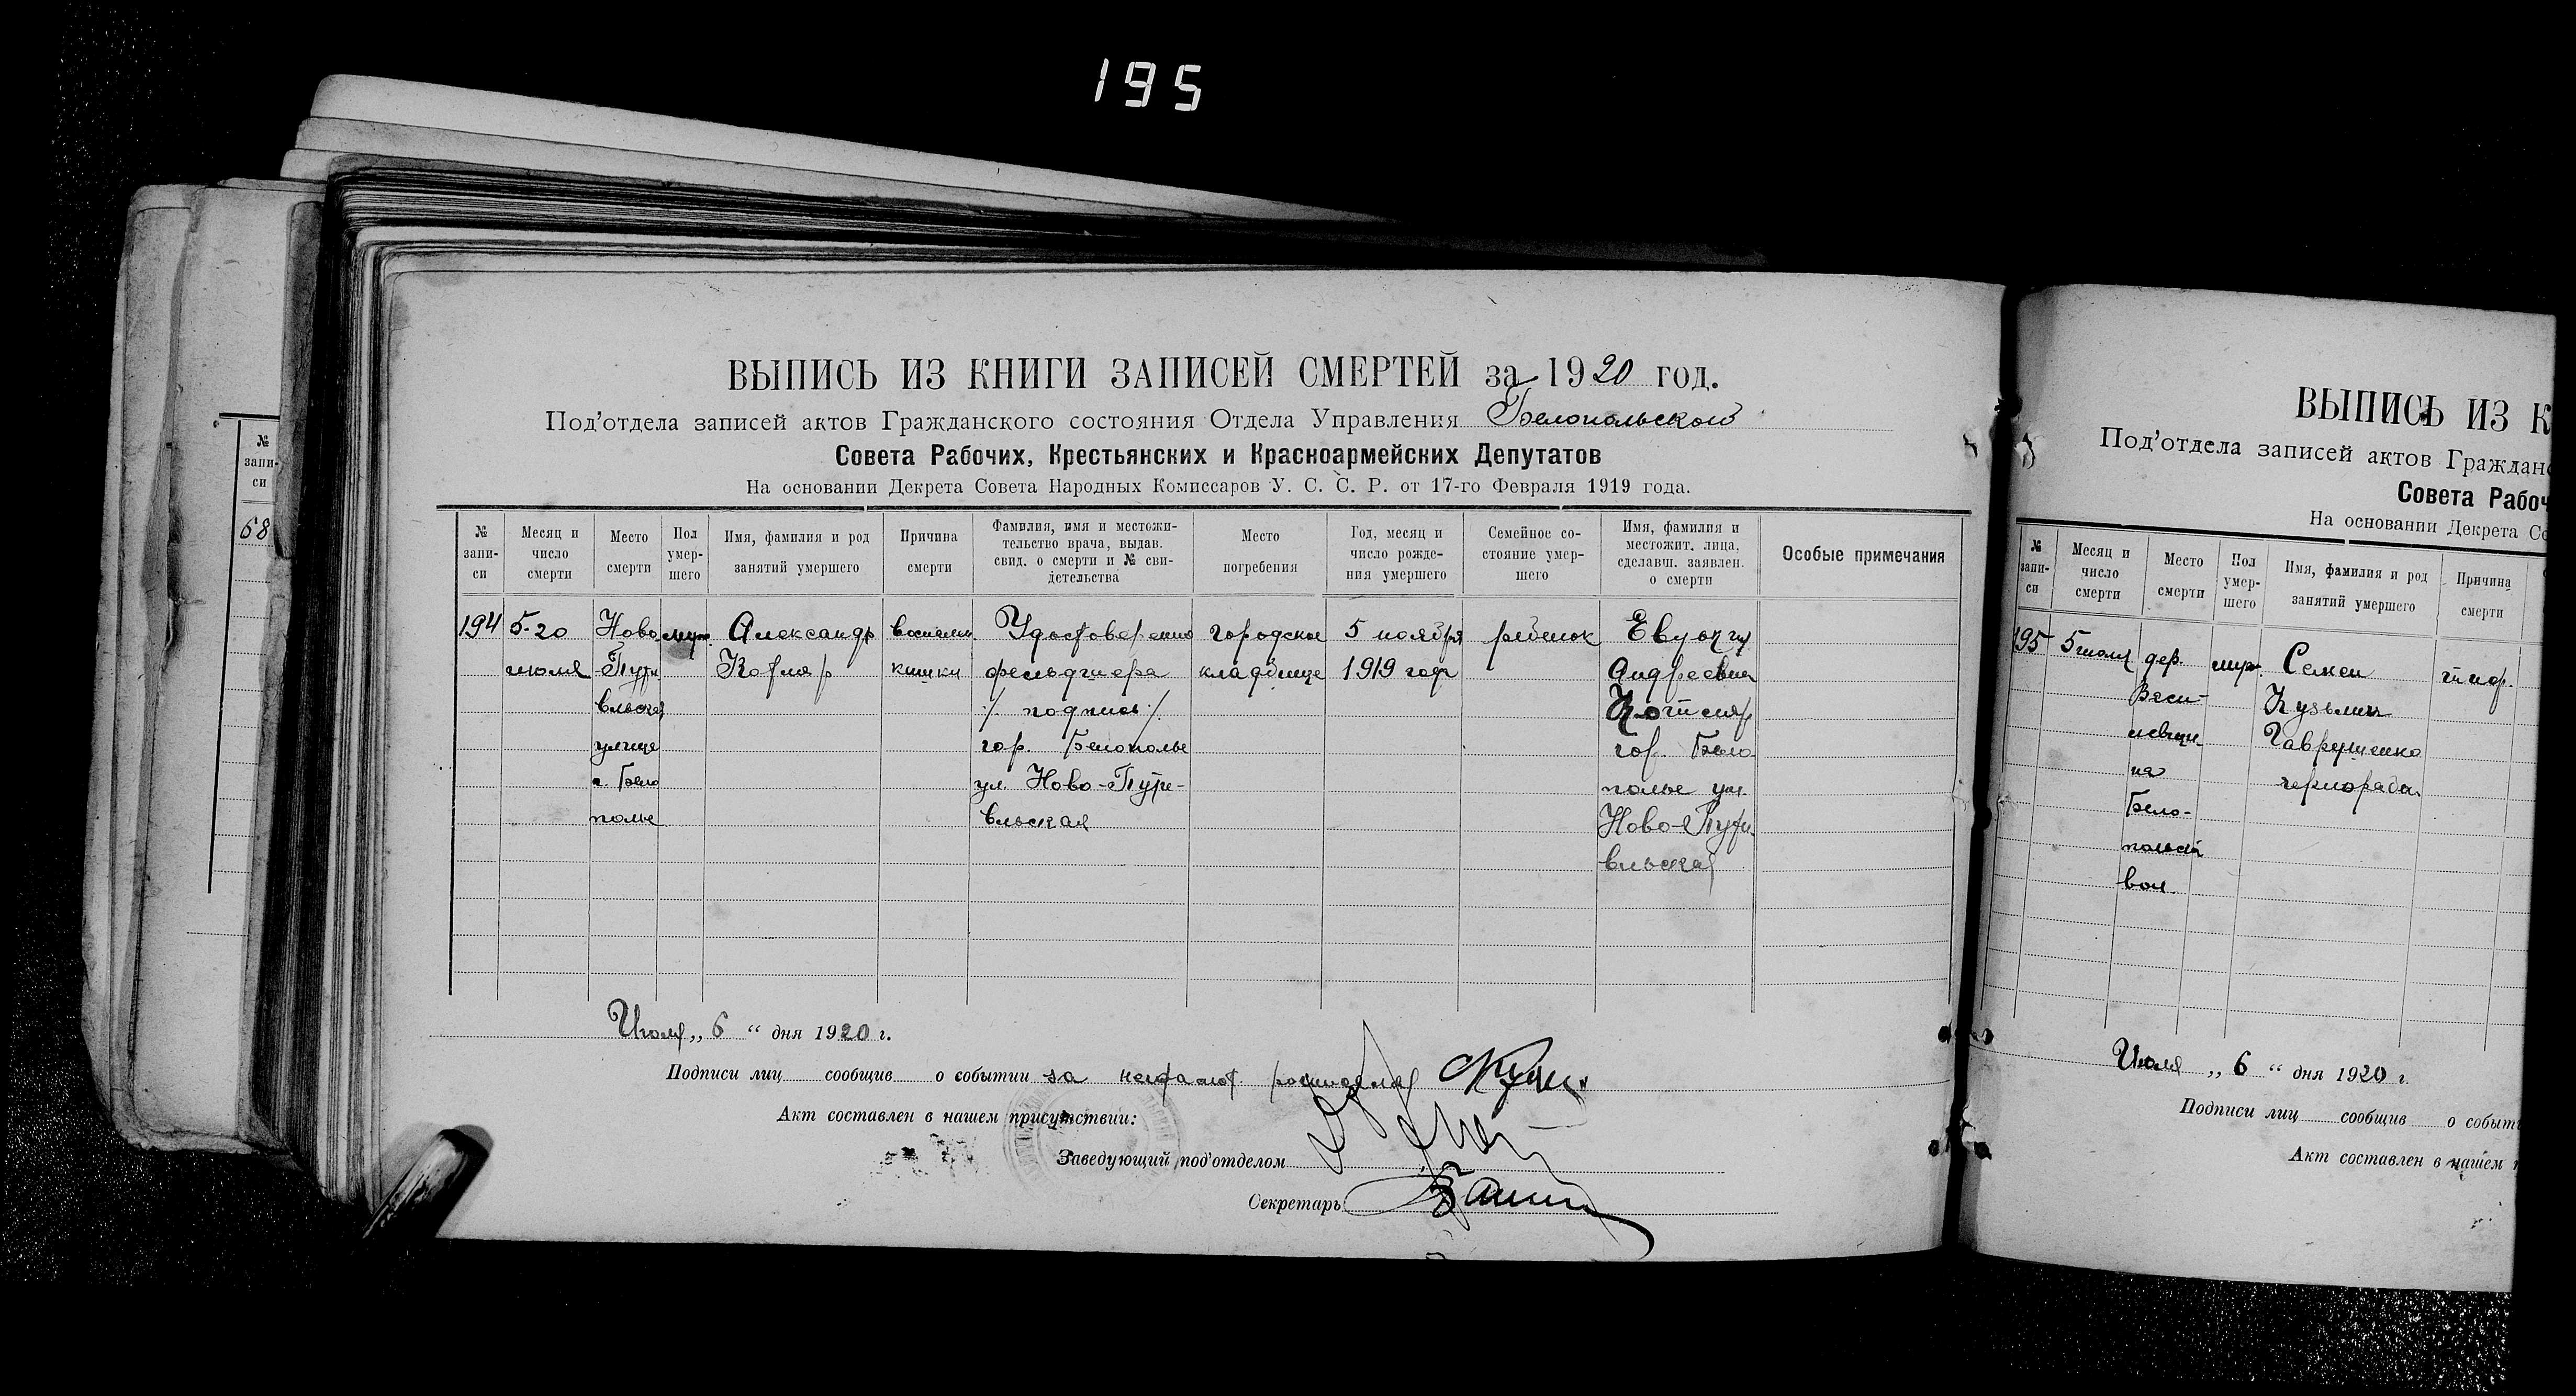 195
ВЫПИСЬ ИЗ КНИГИ ЗАПИСЕЙ СМЕРТЕЙ за 1920 год.
Под'отдела записей актов Гражданского состояния Отдела Управления Белопольской
Совета Рабочих, Крестьянских и Красноармейских Депутатов
На основании Декрета Совета Народных Комиссаров У. С. С. Р. от 17-го Февраля 1919 года.
№ запи- си
Месяц и число смерти
Место смерти
Пол умер- шего
Имя, фамилия и род занятий умершего
Причина смерти
Фамилия, имя и местожи- тельство врача, выдав. свид. о смерти и № сви- детельства
Место погребения
Год, месяц и число рожде- ния умершего
Семейное со- стояние умер- шего
Имя, фамилия и местожит. лица, сделавш. заявлен. о смерти
Особые примечания
194
5-20
июля
Ново
-Пути
вльская
улице
г. Бело
полье
муж.
Александр
Котляр
воспален.
кишки
Удостоверение
фельдшера
/. подпись ./
гор. Белополье
ул. Ново-Пути-
вльская
городское
кладбище
5 ноября
1919 года
ребенок
Андреевна
Котляр
гор. Бело
полье ул.
Ново-Пути
вльская
Июля „ 6 “ дня 1920 г.
Подписи лиц сообщив о событии за
Акт составлен в нашем присутствии:
Заведующий под'отделом
Секретарь
№ запи- си
68
ВЫПИСЬ ИЗ К
Под'отдела записей актов Граждано
Совета Рабоч
На основании Декрета Со
№ запи- си
Месяц и число смерти
Место смерти
Пол умер- шего
Имя, фамилия и род занятий умершего
Причина смерти
195
5 июля
дер.
на
Бело-
вол.
муж.
Семен
Кузьмич
Гаврушенко
чернораб.
Июля „ 6 “ дня 1920 г.
Подписи лиц сообщив о событи
Акт составлен в нашем п